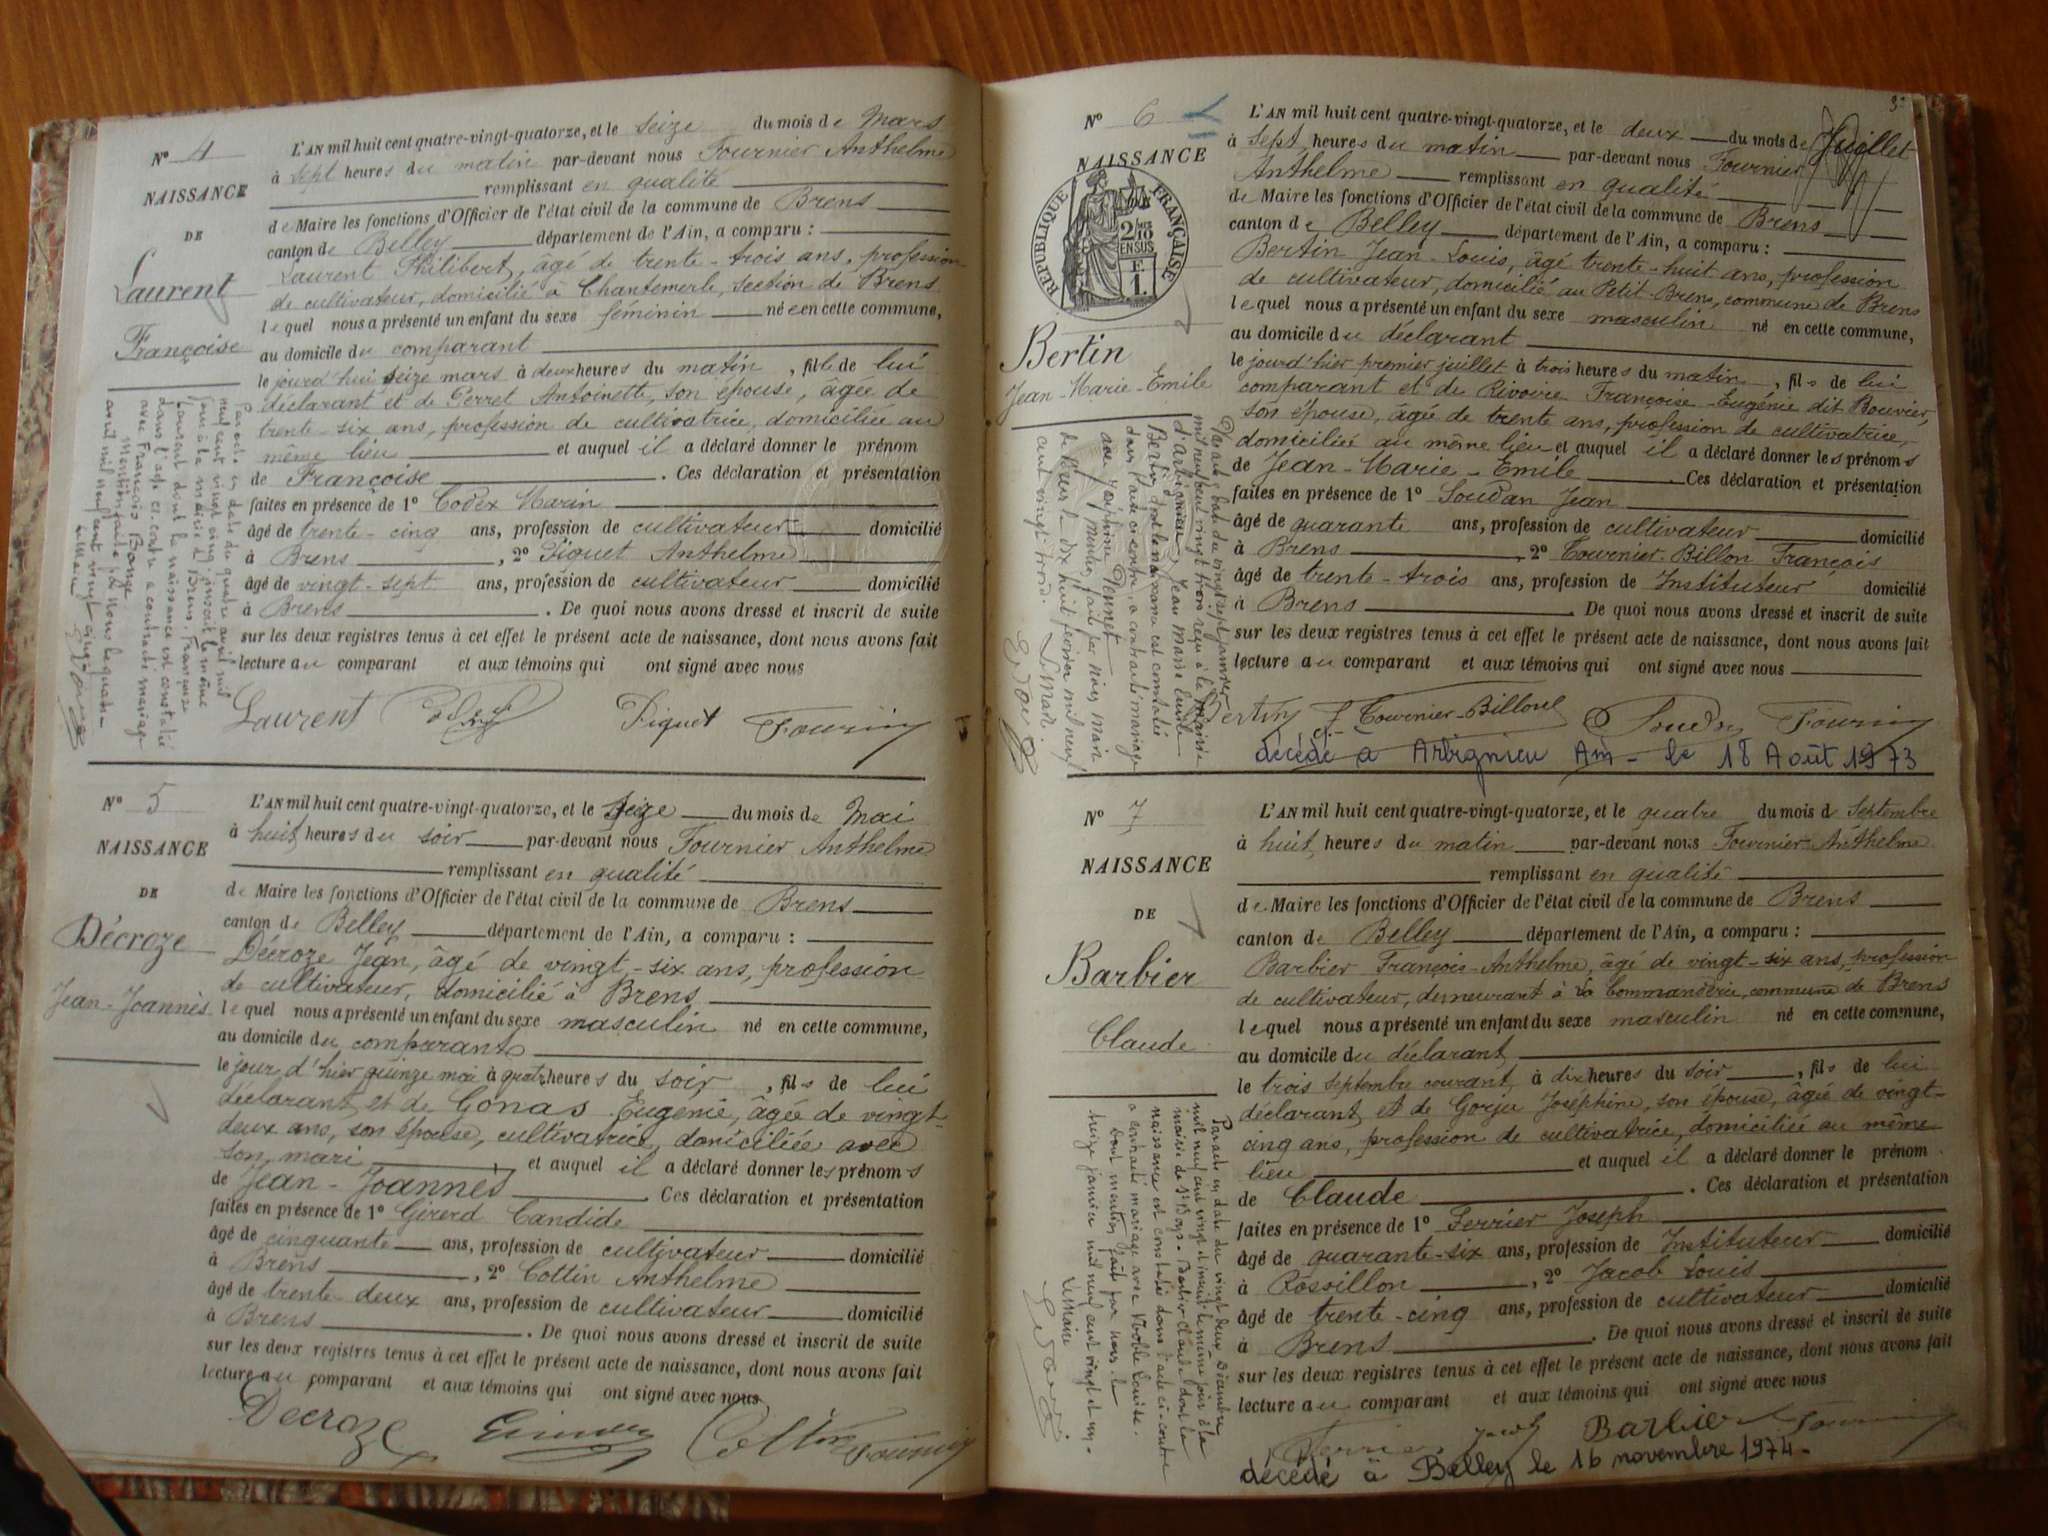 N° 4
NAISSANCE
DE
Laurent
Françoise
L'AN mil huit cent quatre-vingt-quatorze, et le seize du mois de Mars
à sept heures du matin par-devant nous Fournier Anthelme
remplissant en qualité
de Maire les fonctions d'Officier de l'état civil de la commune de Brens
canton de Belley département de l'Ain, a comparu :
Laurent Philibert, âgé de trente-trois ans, profession
de cultivateur, domicilié à Chantemerle, section de Brens
lequel nous a présenté un enfant du sexe féminin né en cette commune,
au domicile du comparant
le jourd'hui seize mars à deux heures du matin, fille de lui
déclarant et de Perret Antoinette, son épouse, âgée de
trente-six ans, profession de cultivatrice, domiciliée au
même lieu et auquel il a déclaré donner le prénom
de Françoise. Ces déclaration et présentation
faites en présence de 1° Codex Marin
âgé de trente-cinq ans, profession de cultivateur domicilié
à Brens, 2° Piquet Anthelme
âgé de vingt-sept ans, profession de cultivateur domicilié
à Brens. De quoi nous avons dressé et inscrit de suite
sur les deux registres tenus à cet effet le présent acte de naissance, dont nous avons fait
lecture au comparant et aux témoins qui ont signé avec nous
Par acte en date du quatre avril mil
neuf cent vingt cinq, inscrit le même
jour à la mairie d Brens, Françoise
Laurent dont la naissance est constatée
dans l'acte ci-contre a contracté mariage
avec François Bange
Mention faite p. Nous le quatre
avril mil neuf cent vingt cinq
Le Maire
Laurent Codex Piquet Fournier
N° 5
NAISSANCE
DE
Décroze
Jean-Joannès
L'AN mil huit cent quatre-vingt-quatorze, et le seize du mois de Mai
à huit heures du soir par-devant nous Fournier Anthelme
remplissant en qualité
de Maire les fonctions d'Officier de l'état civil de la commune de Brens
canton de Belley département de l'Ain, a comparu :
Décroze Jean, âgé de vingt-six ans, profession
de cultivateur, domicilié à Brens
lequel nous a présenté un enfant du sexe masculin né en cette commune,
au domicile du comparant
le jour d'hier quinze mai à quatre heures du soir, fils de lui
déclarant et de Gonas Eugénie, âgée de vingt-
deux ans, son épouse, cultivatrice, domiciliée avec
son mari et auquel il a déclaré donner les prénoms
de Jean-Joannès. Ces déclaration et présentation
faites en présence de 1° Girerd Candide
âgé de cinquante ans, profession de cultivateur domicilié
à Brens, 2° Cottin Anthelme
âgé de trente deux ans, profession de cultivateur domicilié
à Brens. De quoi nous avons dressé et inscrit de suite
sur les deux registres tenus à cet effet le présent acte de naissance, dont nous avons fait
lecture au comparant et aux témoins qui ont signé avec nous
Decroze Cottin Fournier
3e
N° 6
NAISSANCE
RÉPUBLIQUE FRANÇAISE
2/10
EN SUS
F.
1.
Bertin
Jean-Marie-Emile
L'AN mil huit cent quatre-vingt-quatorze, et le deux du mois de Juillet
à sept heures du matin par-devant nous Fournier
Anthelme remplissant en qualité
de Maire les fonctions d'Officier de l'état civil de la commune de Brens
canton de Belley département de l'Ain, a comparu :
Bertin Jean-Louis, âgé trente-huit ans, profession
de cultivateur, domicilié au Petit-Brens, commune de Brens
lequel nous a présenté un enfant du sexe masculin né en cette commune,
au domicile du déclarant
le jourd'hier premier juillet à trois heures du matin, fils de lui
comparant et de Rivoire Françoise-Eugénie dit Bouvier,
son épouse, âgée de trente ans, profession de cultivatrice,
domiciliée au même lieu et auquel il a déclaré donner les prénoms
de Jean-Marie-Emile. Ces déclaration et présentation
faites en présence de 1° Soudan Jean
âgé de quarante ans, profession de cultivateur domicilié
à Brens, 2° Tournier-Billon François
âgé de trente-trois ans, profession de Instituteur domicilié
à Brens. De quoi nous avons dressé et inscrit de suite
sur les deux registres tenus à cet effet le présent acte de naissance, dont nous avons fait
lecture au comparant et aux témoins qui ont signé avec nous
Par acte en date du vingt sept janvier
mil neuf cent vingt trois reçu à la mairie
d'arbignieu Jean Marie Emile
Bertin dont la naissance est constatée
dans l'acte ci-contre, a contracté mariage
avec
Dont mention faite par nous, maire
de Brens le dix huit février mil neuf
cent vingt trois.
Le Maire.
Bertin F. Tournier-Billon Soudan Fournier
décédé à Arbignieu Ain - le 18 Août 1973
N° 7
NAISSANCE
DE
Barbier
Claude
L'AN mil huit cent quatre-vingt-quatorze, et le quatre du mois d Septembre
à huit heures du matin par-devant nous Fournier-Anthelme
remplissant en qualité
de Maire les fonctions d'Officier de l'état civil de la commune de Brens
canton de Belley département de l'Ain, a comparu :
Barbier François-Anthelme, âgé de vingt-six ans, profession
de cultivateur, demeurant à la Commanderie, commune de Brens
lequel nous a présenté un enfant du sexe masculin né en cette commune,
au domicile du déclarant
le trois septembre courant à dix heures du soir, fils de lui
déclarant et de Gorju Joséphine, son épouse, âgée de vingt-
cinq ans, profession de cultivatrice, domiciliée au même
lieu et auquel il a déclaré donner le prénom
de Claude. Ces déclaration et présentation
faites en présence de 1° Ferrier Joseph
âgé de quarante-six ans, profession de Instituteur domicilié
à Rossillon, 2° Jacob Louis
âgé de trente-cinq ans, profession de cultivateur domicilié
à Brens. De quoi nous avons dressé et inscrit de suite
sur les deux registres tenus à cet effet le présent acte de naissance, dont nous avons fait
lecture au comparant et aux témoins qui ont signé avec nous
Par acte en date du vingt deux décembre
mil neuf cent vingt et inscrit le même jour à la
mairie de Barbier Claude dont la
naissance est constatée dans l'acte ci-contre
a contracté mariage avec Louise.
Dont mention faite par nous le
treize janvier mil neuf cent vingt et un.
Le Maire
Ferrier Jacob Barbier Fournier
décédé à Belley le 16 novembre 1974.